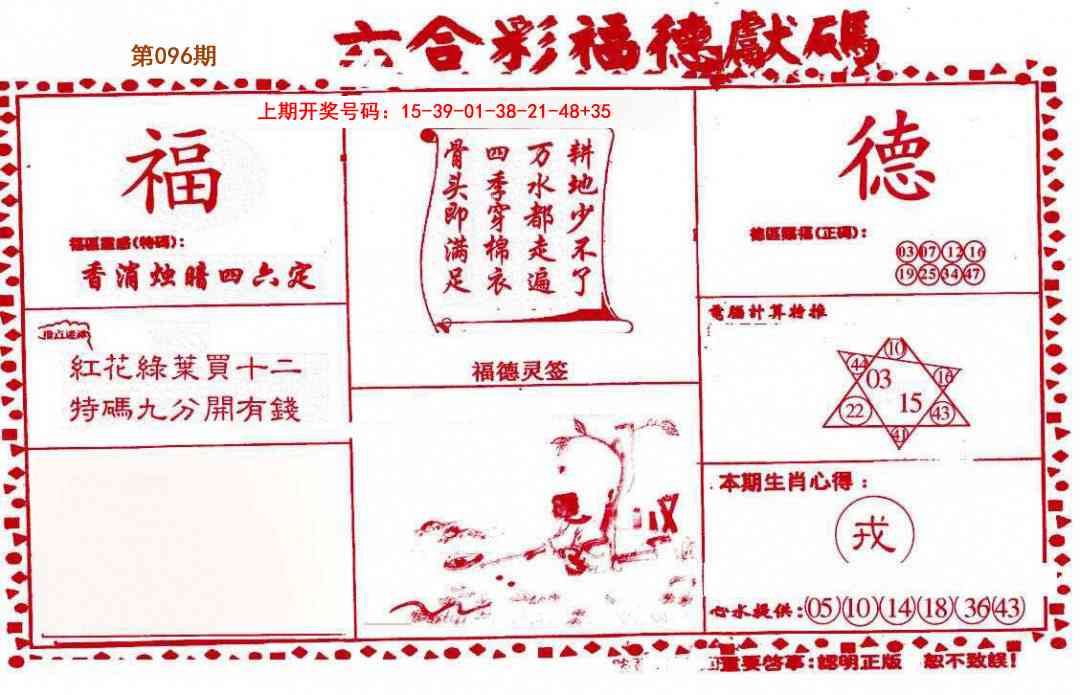 第096期
六合彩福德獻碼
上期开奖号码：15-39-01-38-21-48+35
福
福區靈感(特碼):
香消烛暗四六定
紅花綠葉買十二
特碼九分開有錢
耕地少不了
万水都走遍
四季穿棉衣
骨头即满足
福德灵签
德
德區賜福(正碼):
03 07 12 16
19 25 34 47
電腦計算特推
10
44 03 16
22 15 43
41
本期生肖心得：
戎
心水提供:05 10 14 18 36 43
重要啓事:認明正版 恕不致誤!